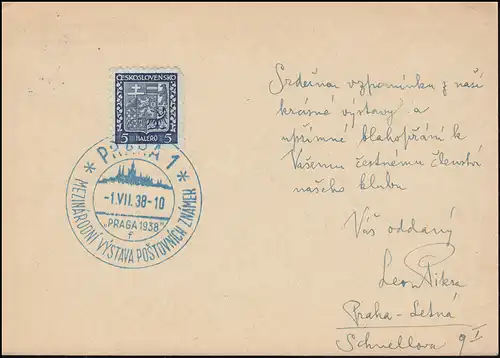 ČESKOSLOVENSKO
5 HALÉŘŮ 5
* PRAHA 1 *
-1.VII.38-10
„PRAGA 1938“
f
MEZINÁRODNÍ VÝSTAVA POŠTOVNÍCH ZNÁMEK
Srdečnou vzpomínku z naší
krásné výstavy a
upřímné blahopřání k
Vašemu čestnému členství
našeho klubu
Váš oddaný
Leon
Praha-Letná
Schnellova 9